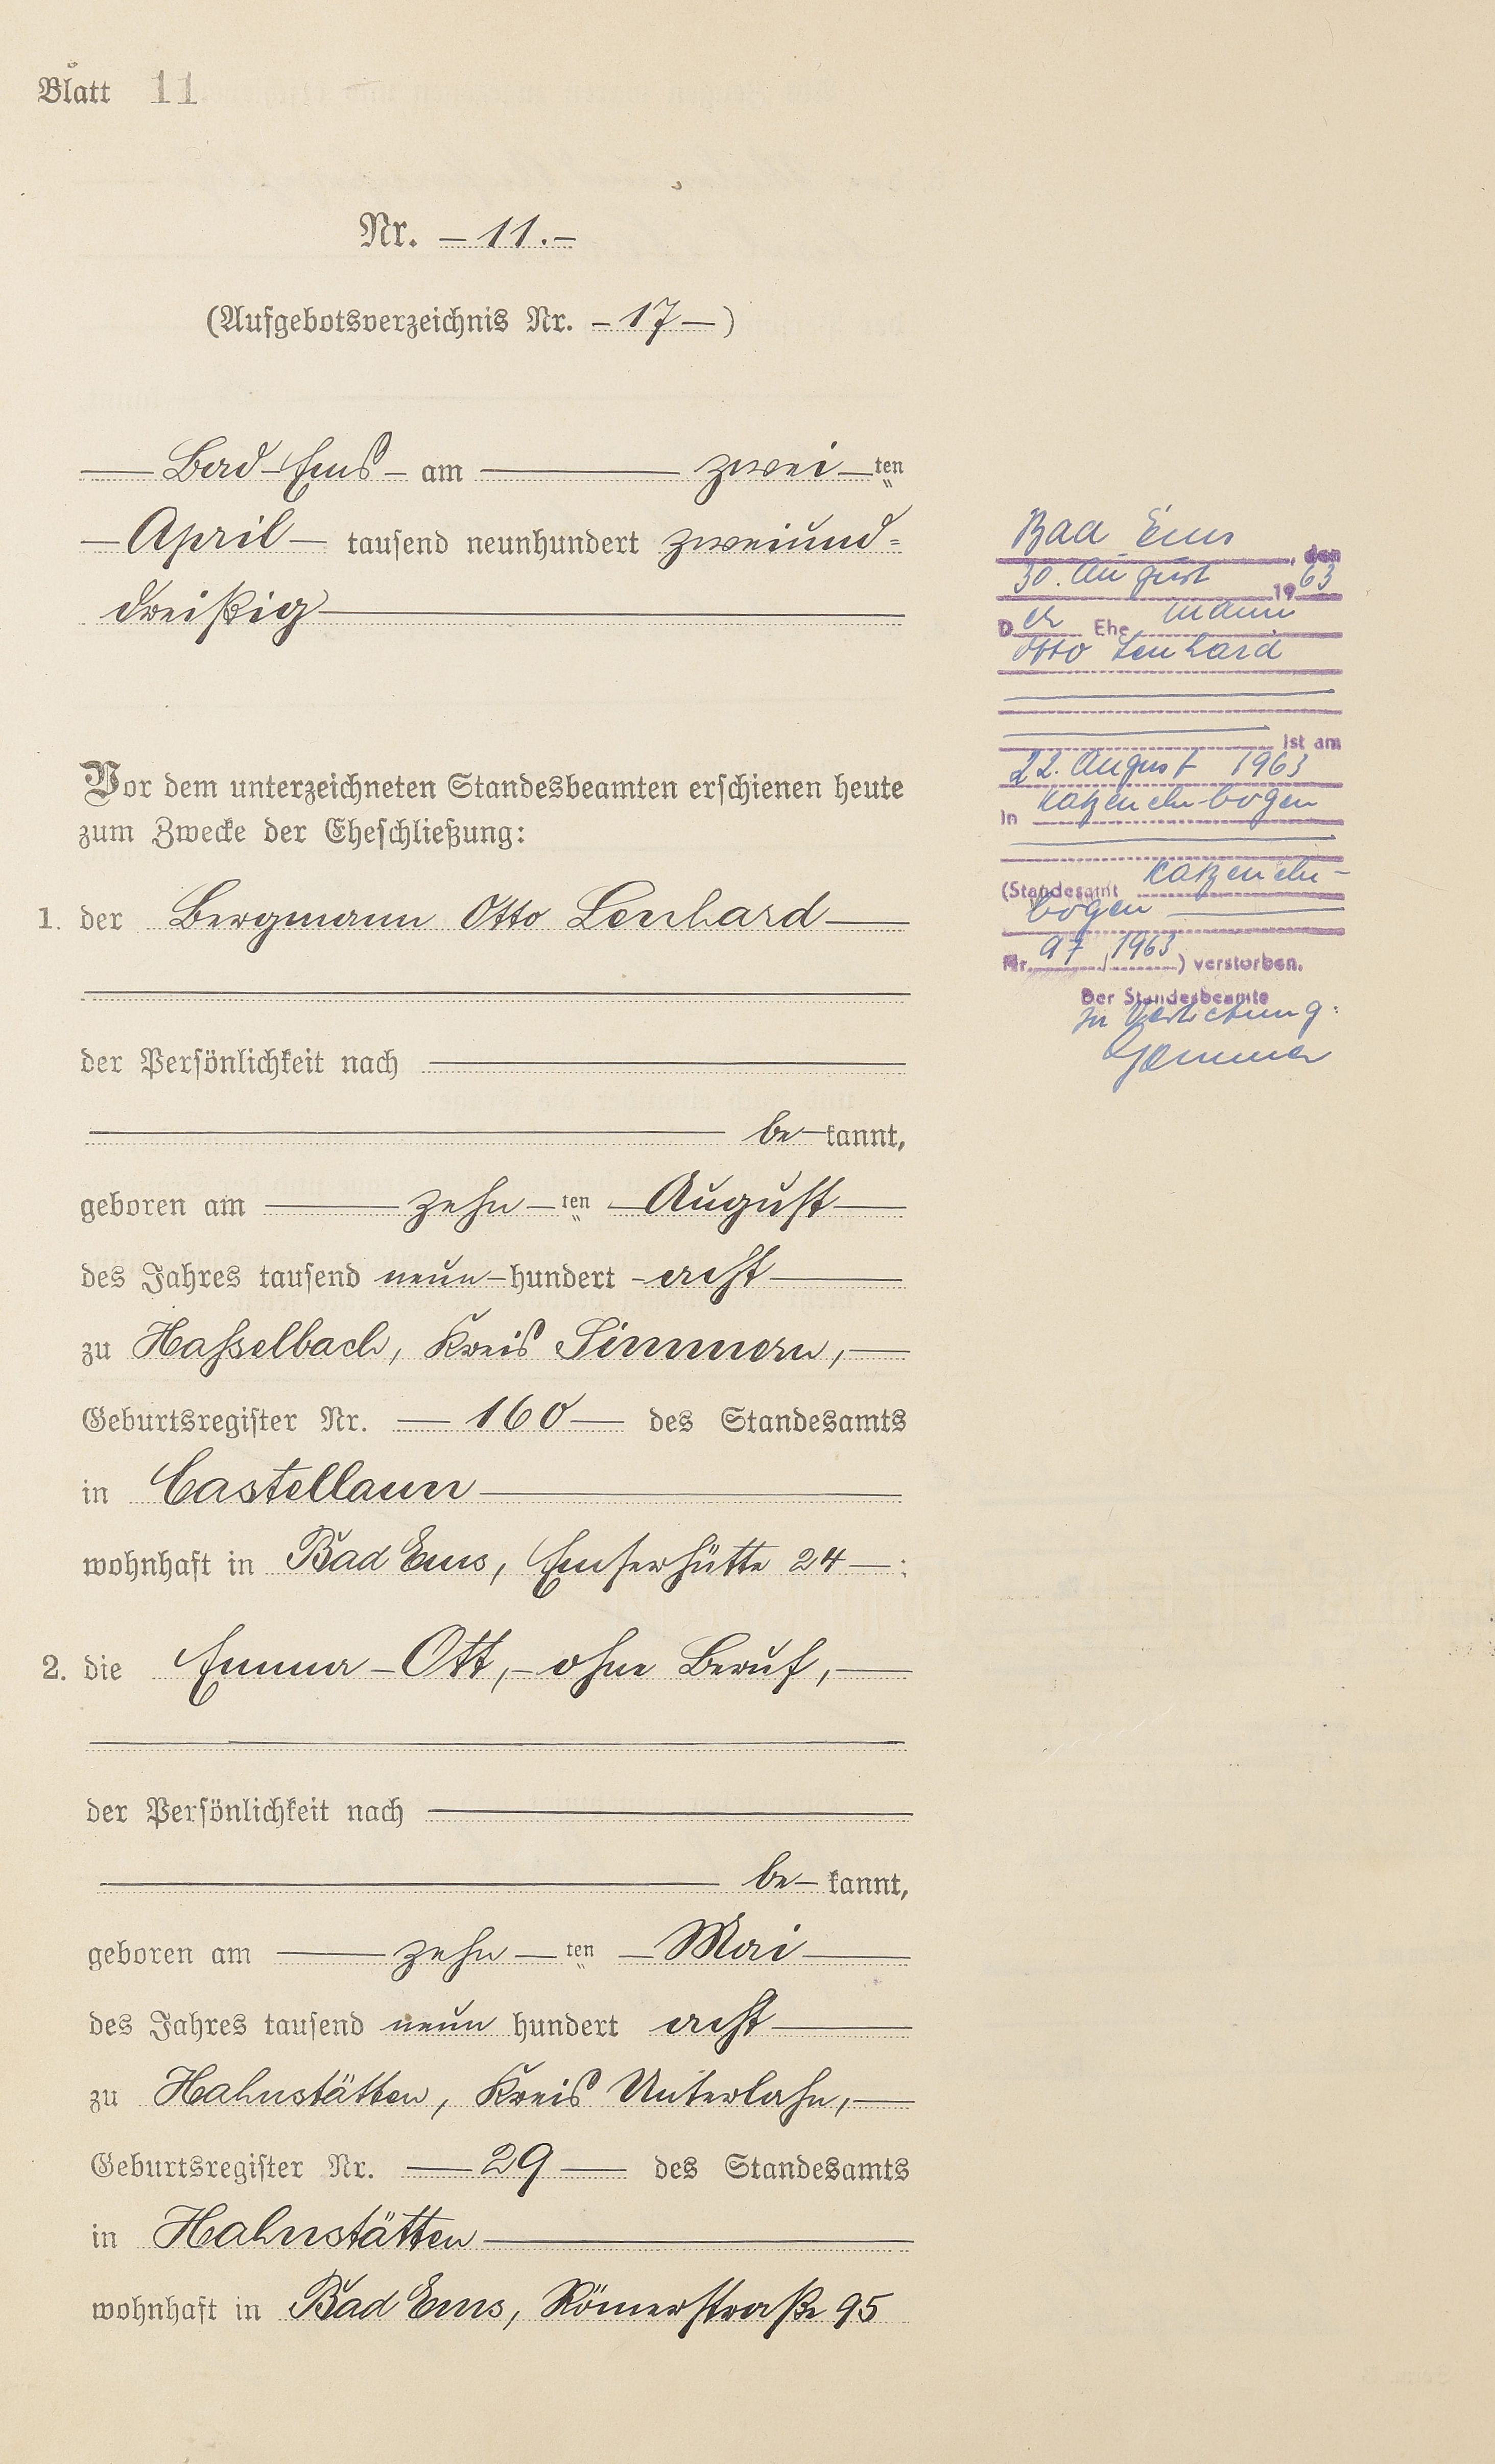 Blatt 11
Nr. – 11. –
(Aufgebotsverzeichnis Nr. – 17 – )
Bad Ems – am zwei ten
– April – tausend neunhundert zweiund=
dreißig
Vor dem unterzeichneten Standesbeamten erschienen heute
zum Zwecke der Eheschließung:
1. der Bergmann Otto Lenhard
der Persönlichkeit nach
be kannt,
geboren am zehn ten August
des Jahres tausend neun hundert acht
zu Hasselbach, Kreis Simmern,
Geburtsregister Nr. 160 des Standesamts
in Castellaun
wohnhaft in Bad Ems, Emserhütte 24 ;
2. die Emma Ott, ohne Beruf,
der Persönlichkeit nach
be kannt,
geboren am zehn ten Mai
des Jahres tausend neun hundert acht
zu Hahnstätten, Kreis Unterlahn,
Geburtsregister Nr. 29 des Standesamts
in Hahnstätten
wohnhaft in Bad Ems, Römerstraße 95
Bad Ems, den
30. August 1963
Der Ehemann
Otto Lenhard
ist am
22. August 1963
in Katzenelnbogen
(Standesamt Katzeneln-
bogen
Nr. 97 / 1963 ) verstorben.
Der Standesbeamte
In Vertretung: